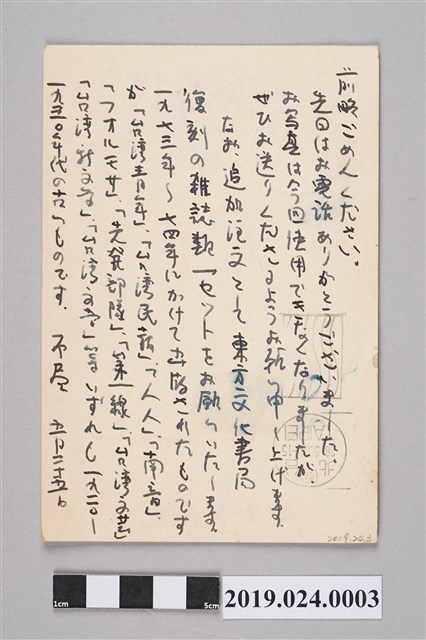 前略ごめんください。
先日はお電話ありがとうございました。
お写真は今回使用できなくなりましたが
ぜひお送りくださるようお願い申し上げます。
なお追加注文として東方文化書局
復刻の雑誌類一セットをお願いいたします。
一九七三年〜七四年にかけて出版されたものです
が「台湾青年」、「台湾民報」、「人人」、「南音」、
「フオルモサ」、「先発部隊」、「第一線」、「台湾文芸」
「台湾新文学」、「台湾文学」等いずれも一九二〇〜
一九三〇年代の古いものです。 不尽 五月二十五日
2019.24.3
1cm
5cm
2019.024.0003